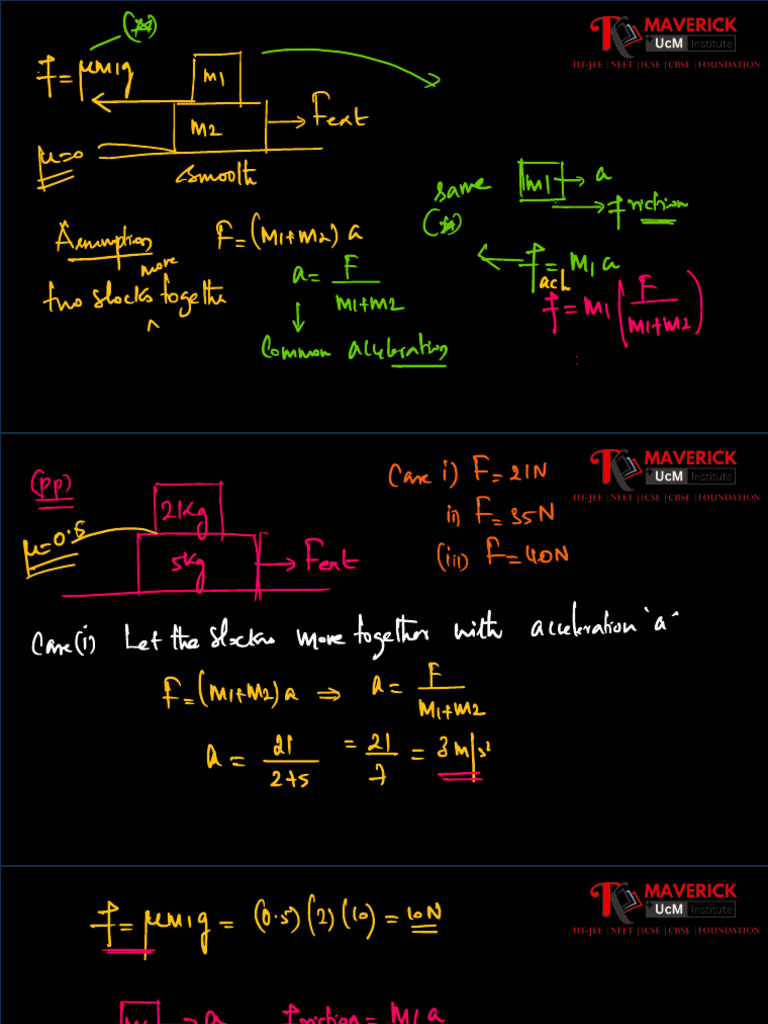 MAVERICK
UcM Institute
IIT-JEE | NEET | ICSE | CBSE | FOUNDATION
f = μm1g
m1
m2
Fext
μ=0
smooth
Assumption
more
two blocks together
F = (m1+m2) a
a = F / m1+m2
Common acceleration
same
m1 → a
friction
f = m1 a
act
f = m1 (F / m1+m2)
MAVERICK
UcM Institute
IIT-JEE | NEET | ICSE | CBSE | FOUNDATION
(pp)
2kg
μ=0.5
5kg
Fext
Case i) F = 21N
ii) F = 35N
(iii) F = 40N
Case(i) Let the blocks move together with acceleration 'a'
F = (m1+m2) a ⇒ a = F / m1+m2
a = 21 / 2+5 = 21 / 7 = 3 m/s²
MAVERICK
UcM Institute
IIT-JEE | NEET | ICSE | CBSE | FOUNDATION
f = μm1g = (0.5)(2)(10) = 10N
m1 → a friction = m1 a